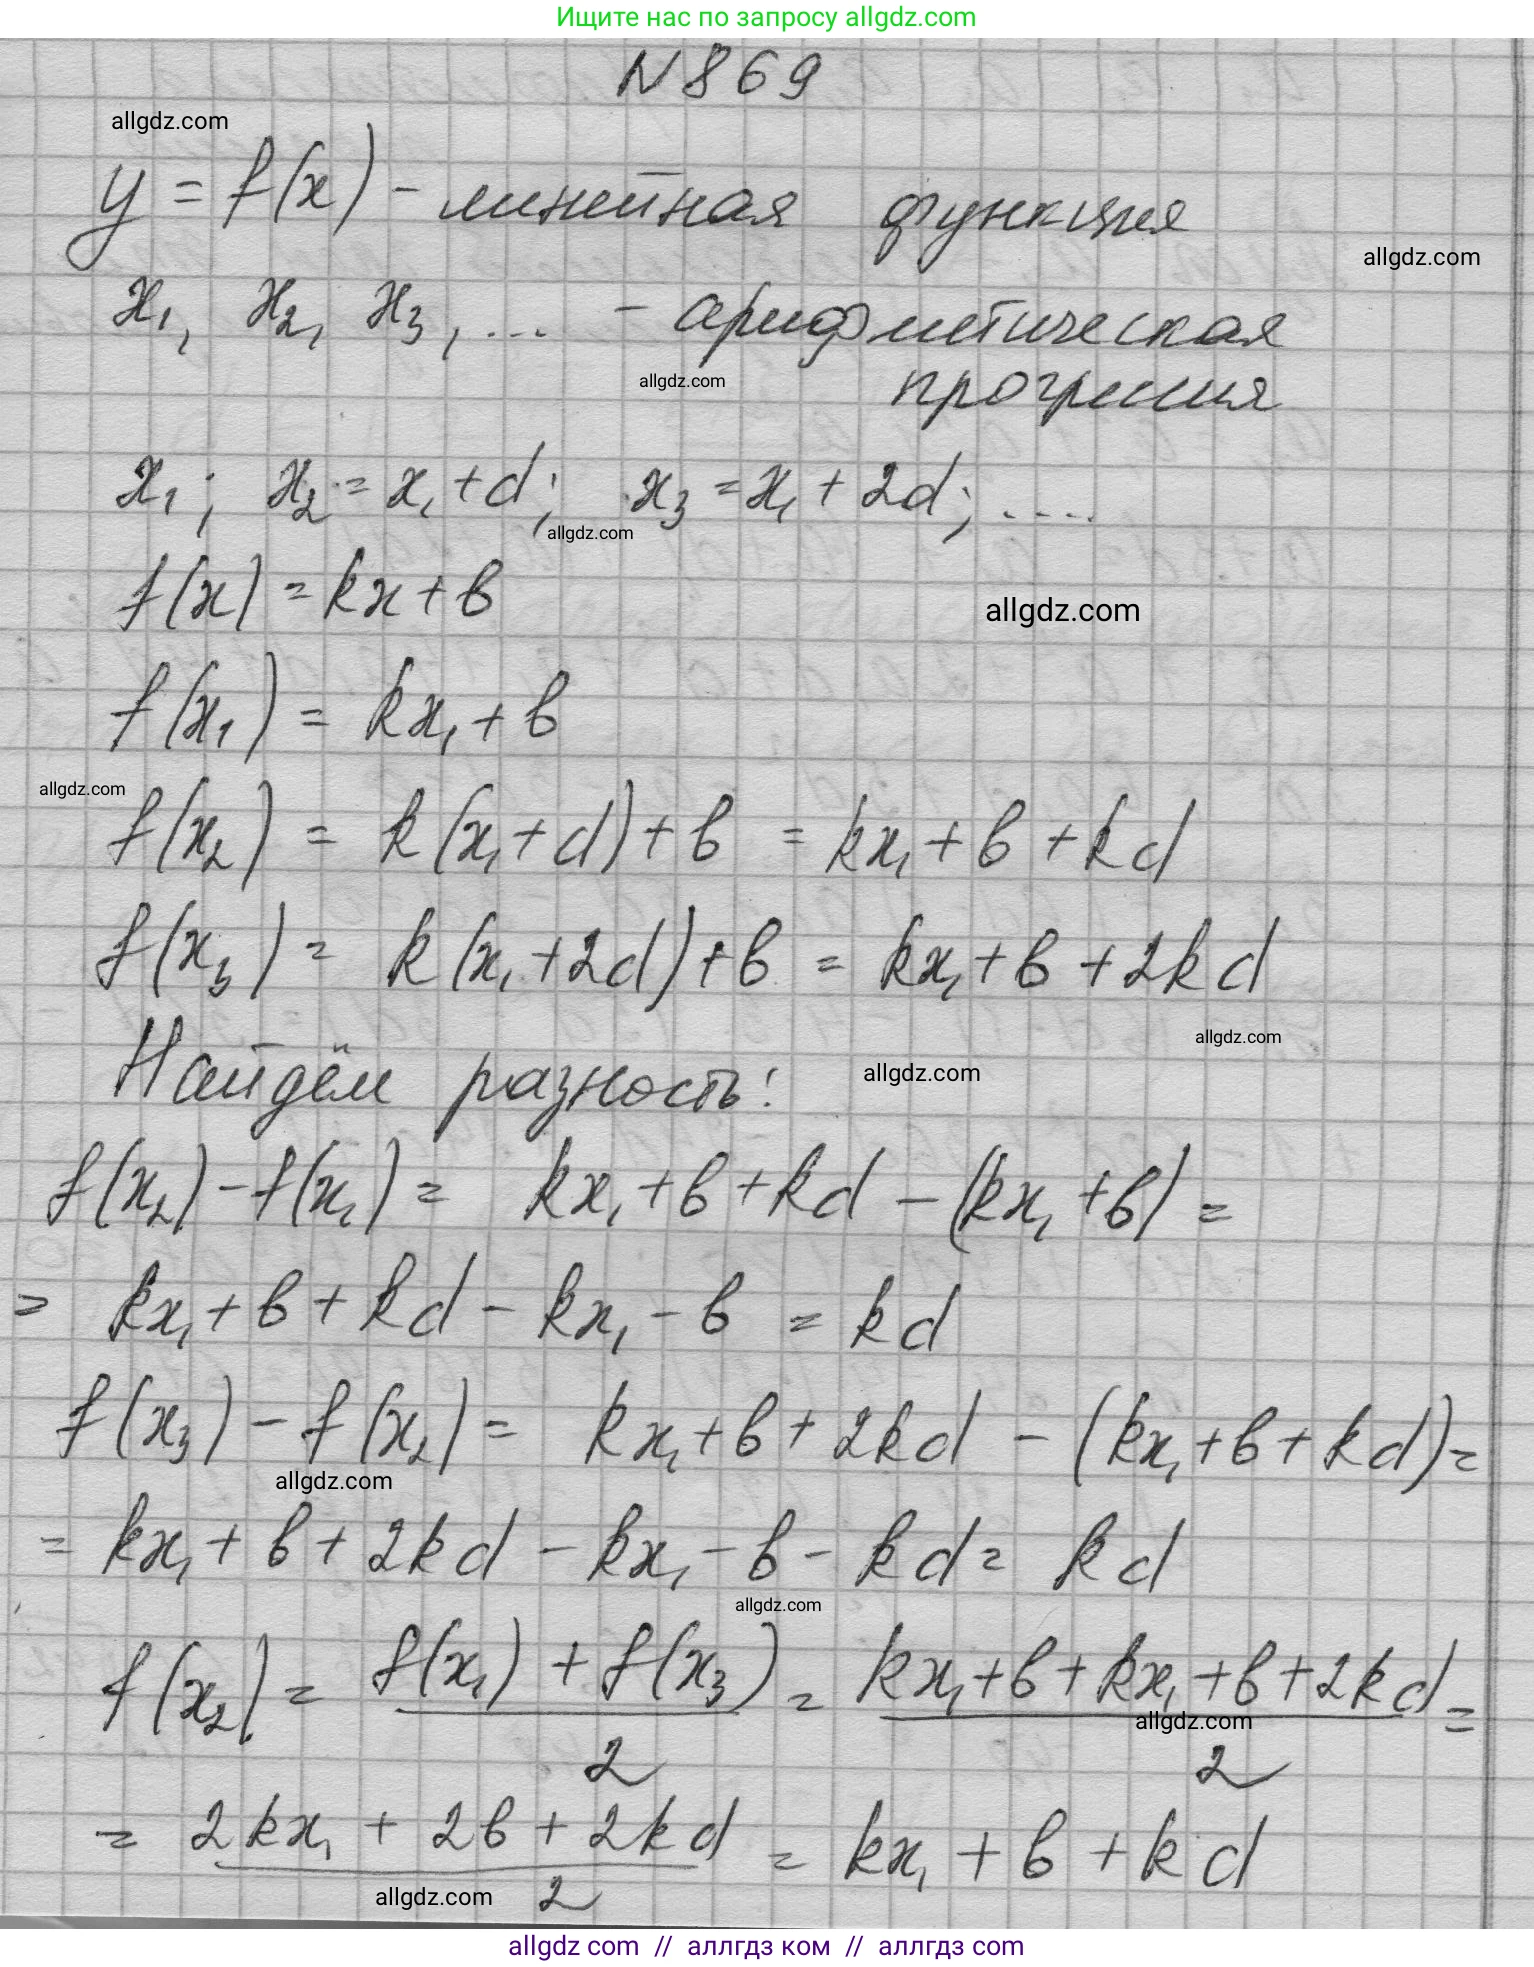 Ищите нас по запросу allgdz.com
N 869
allgdz.com
y = f(x) - линейная функция
allgdz.com
x₁, x₂, x₃, ... - арифметическая
allgdz.com
прогрессия
x₁; x₂ = x₁ + d; x₃ = x₁ + 2d; ....
allgdz.com
f(x) = kx + b
allgdz.com
f(x₁) = kx₁ + b
allgdz.com
f(x₂) = k(x₁ + d) + b = kx₁ + b + kd
f(x₃) = k(x₁ + 2d) + b = kx₁ + b + 2kd
allgdz.com
Найдём разность:
allgdz.com
f(x₂) - f(x₁) = kx₁ + b + kd - (kx₁ + b) =
= kx₁ + b + kd - kx₁ - b = kd
f(x₃) - f(x₂) = kx₁ + b + 2kd - (kx₁ + b + kd) =
allgdz.com
= kx₁ + b + 2kd - kx₁ - b - kd = kd
allgdz.com
f(x₂) = (f(x₁) + f(x₃))/2 = (kx₁ + b + kx₁ + b + 2kd)/2 =
allgdz.com
= (2kx₁ + 2b + 2kd)/2 = kx₁ + b + kd
allgdz.com
allgdz com // аллгдз ком // аллгдз com